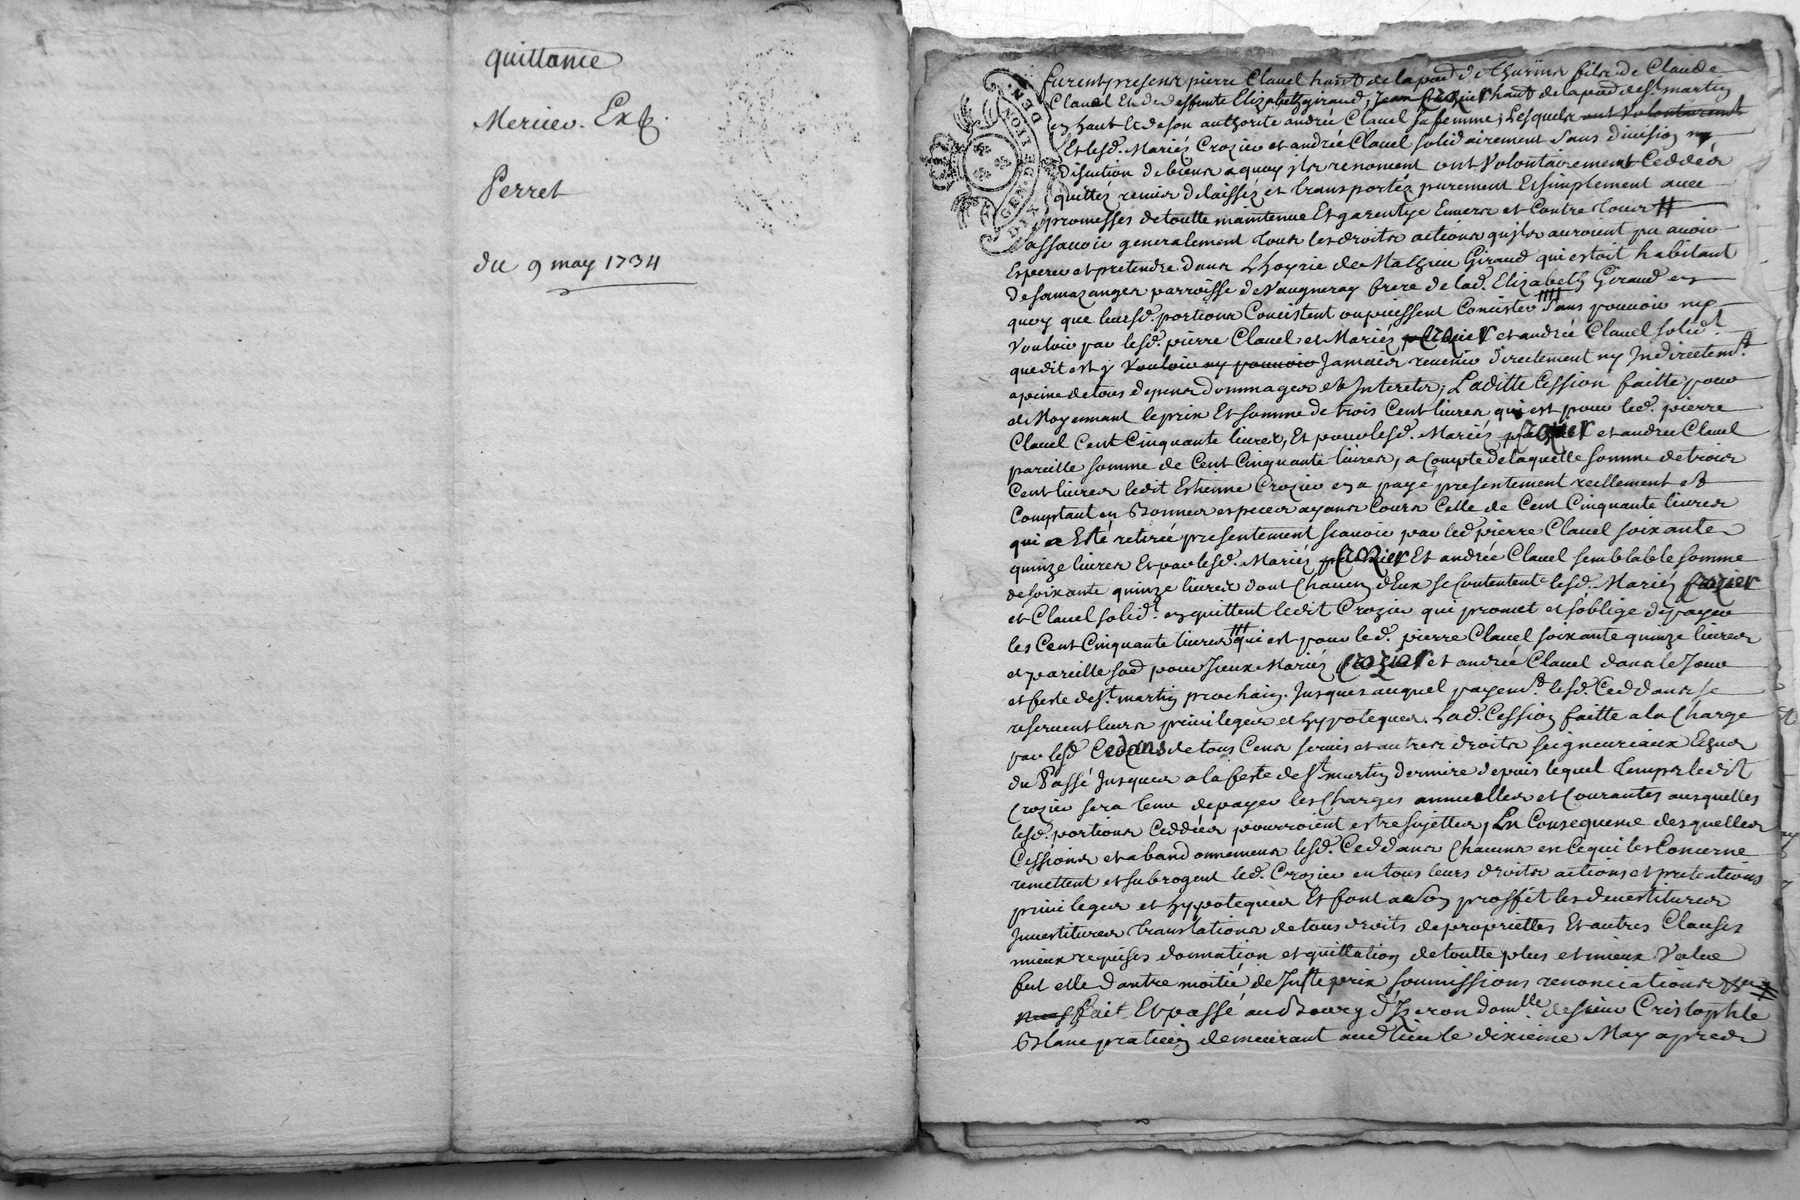 quittance
Mercier. Exp.
Perret
du 9 may 1734
GEN. DE LYON.
DIX
furent presens pierre Clavel hant de la pard de thurins fils de Claude
Clavel Et de deffunte Elizabeth giraud, Jean Crozier hant de la pard de st martin
en haut Et de son authorité andrée Clavel sa femme, Lesquels ont Volontairement
Et lesd. Mariés Crozier et andrée Clavel solidairement sans division ny
discution de biens a quoy ils renoncent ont Volontairement Ceddés
quittés remis delaissés et transportés purement Et simplement avec
promesses de toutte maintenue Et garentye Envers et Contre tous
assavoir generalement tous les droits actions quils auroient pu avoir
Esperer et pretendre dans Lhoyrie de Mathieu Giraud qui estoit habitant
de parroisse de Vaugneray frere de lad. Elizabeth Giraud en
quoy que leursd. portions Concistent ou puissent Concister sans pouvoir ny
Vouloir par lesd. pierre Clavel et Mariés Crozier et andrée Clavel solid.t
que dit est y Vouloir ny pouvoir Jamais revenir directement ny Indirectem.t
a peine de tous depens dommages et Interets, Laditte Cession faitte pour
et Moyennant le prix Et somme de trois Cent livres qui est pour led. pierre
Clavel Cent Cinquante livres, Et pour lesd. Mariés Crozier et andrée Clavel
pareille somme de Cent Cinquante livres, a Compte de laquelle somme de trois
Cent livres ledit Estienne Crozier en a payé presentement reellement et
Comptant en Bonnes especes ayans Cours Celle de Cent Cinquante livres
qui a Esté retirée presentement scavoir par led pierre Clavel soixante
quinze livres Et par lesd. Mariés Crozier Et andrée Clavel semblable somme
de soixante quinze livres dont Chacun dEux se Contentent lesd. Mariés Crozier
et Clavel solid.t en quittent ledit Crozier qui promet et soblige de payer
les Cent Cinquante livres qui est pour led. pierre Clavel soixante quinze livres
et pareille so.e pour Iceux Mariés Crozier et andrée Clavel dans le Jour
et feste de St. martin prochain. Jusques auquel payem.t lesd. Ceddans se
reservent leurs privileges et hypoteques. Lad. Cession faitte a la Charge
par lesd Cedans de tous Cens servis et autres droits seigneuriaux Echus
du Passé Jusques a la feste de St. martin derniere depuis lequel Temps ledit
Crozier sera tenu de payer les Charges annuelles et Courantes ausquelles
lesd. portions Ceddées pourroient estre sujettes, En Consequence desquelles
Cessions et abandonnemens lesd. Ceddans Chacuns en Ce qui les Concerne
remettent et subrogent led. Crozier en tous leurs droits actions et pretentions
privileges et hypoteques Et font a Son proffit les devestitures
Investitures translations de tous droits de proprietés Et autres Clauses
mieux requises donnation et quittation de toutte plus et mieux Value
fut elle d'outre moitié de Juste prix soumissions renonciations
fait Et passé au Bourg d'Izeron domlle. de sieur Cristophle
Blanc praticien demeurant aud lieu le dixieme May apres